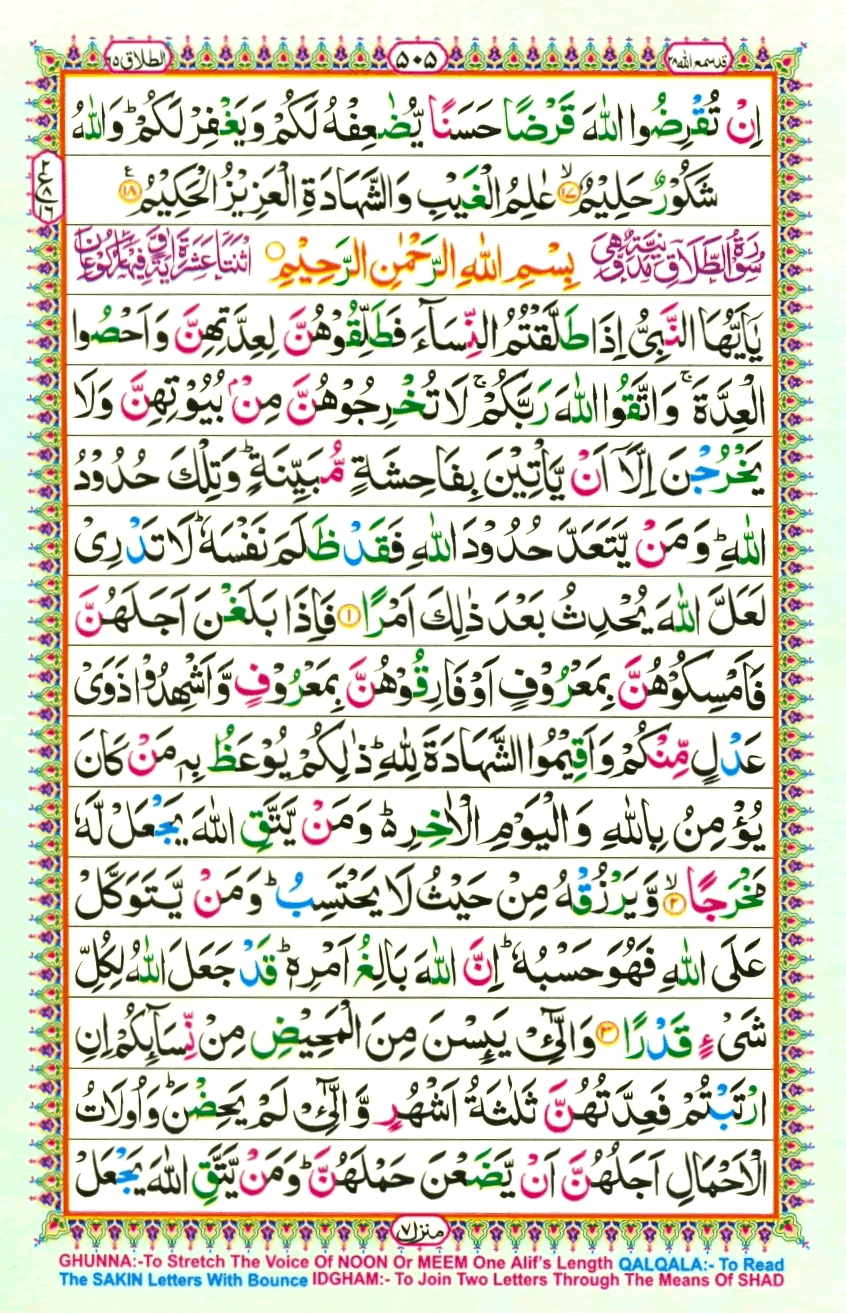 الطلاق ٦٥
٥٠٥
قد سمع الله ٢٨
اِنْ تُقْرِضُوا اللّٰهَ قَرْضًا حَسَنًا يُّضٰعِفْهُ لَكُمْ وَيَغْفِرْ لَكُمْ ؕ وَاللّٰهُ
شَكُوْرٌ حَلِيْمٌ ۙ﴿۱۷﴾ عٰلِمُ الْغَيْبِ وَالشَّهَادَةِ الْعَزِيْزُ الْحَكِيْمُ ﴿۱۸﴾
ع
٢
٨
١٦
سُوْرَةُ الطَّلَاقِ مَدَنِيَّةٌ وَّهِيَ بِسْمِ اللّٰهِ الرَّحْمٰنِ الرَّحِيْمِ اثْنَتَا عَشْرَةَ اٰيَةً وَّفِيْهَا رُكُوْعَانِ
يٰۤاَيُّهَا النَّبِىُّ اِذَا طَلَّقْتُمُ النِّسَآءَ فَطَلِّقُوْهُنَّ لِعِدَّتِهِنَّ وَاَحْصُوا
الْعِدَّةَ ۚ وَاتَّقُوا اللّٰهَ رَبَّكُمْ ۚ لَا تُخْرِجُوْهُنَّ مِنْۢ بُيُوْتِهِنَّ وَلَا
يَخْرُجْنَ اِلَّاۤ اَنْ يَّاْتِيْنَ بِفَاحِشَةٍ مُّبَيِّنَةٍ ؕ وَتِلْكَ حُدُوْدُ
اللّٰهِ ؕ وَمَنْ يَّتَعَدَّ حُدُوْدَ اللّٰهِ فَقَدْ ظَلَمَ نَفْسَهٗ ؕ لَا تَدْرِىْ
لَعَلَّ اللّٰهَ يُحْدِثُ بَعْدَ ذٰلِكَ اَمْرًا ﴿۱﴾ فَاِذَا بَلَغْنَ اَجَلَهُنَّ
فَاَمْسِكُوْهُنَّ بِمَعْرُوْفٍ اَوْ فَارِقُوْهُنَّ بِمَعْرُوْفٍ وَّاَشْهِدُوْا ذَوَىْ
عَدْلٍ مِّنْكُمْ وَاَقِيْمُوا الشَّهَادَةَ لِلّٰهِ ؕ ذٰلِكُمْ يُوْعَظُ بِهٖ مَنْ كَانَ
يُؤْمِنُ بِاللّٰهِ وَالْيَوْمِ الْاٰخِرِ ؕ۬ وَمَنْ يَّتَّقِ اللّٰهَ يَجْعَلْ لَّهٗ
مَخْرَجًا ۙ﴿۲﴾ وَّيَرْزُقْهُ مِنْ حَيْثُ لَا يَحْتَسِبُ ؕ وَمَنْ يَّتَوَكَّلْ
عَلَى اللّٰهِ فَهُوَ حَسْبُهٗ ؕ اِنَّ اللّٰهَ بَالِغُ اَمْرِهٖ ؕ قَدْ جَعَلَ اللّٰهُ لِكُلِّ
شَىْءٍ قَدْرًا ﴿۳﴾ وَالّٰٓئِىْ يَئِسْنَ مِنَ الْمَحِيْضِ مِنْ نِّسَآئِكُمْ اِنِ
ارْتَبْتُمْ فَعِدَّتُهُنَّ ثَلٰثَةُ اَشْهُرٍ وَّالّٰٓئِىْ لَمْ يَحِضْنَ ؕ وَاُولَاتُ
الْاَحْمَالِ اَجَلُهُنَّ اَنْ يَّضَعْنَ حَمْلَهُنَّ ؕ وَمَنْ يَّتَّقِ اللّٰهَ يَجْعَلْ
منزل ٧
GHUNNA:-To Stretch The Voice Of NOON Or MEEM One Alif's Length QALQALA:- To Read
The SAKIN Letters With Bounce IDGHAM:- To Join Two Letters Through The Means Of SHAD